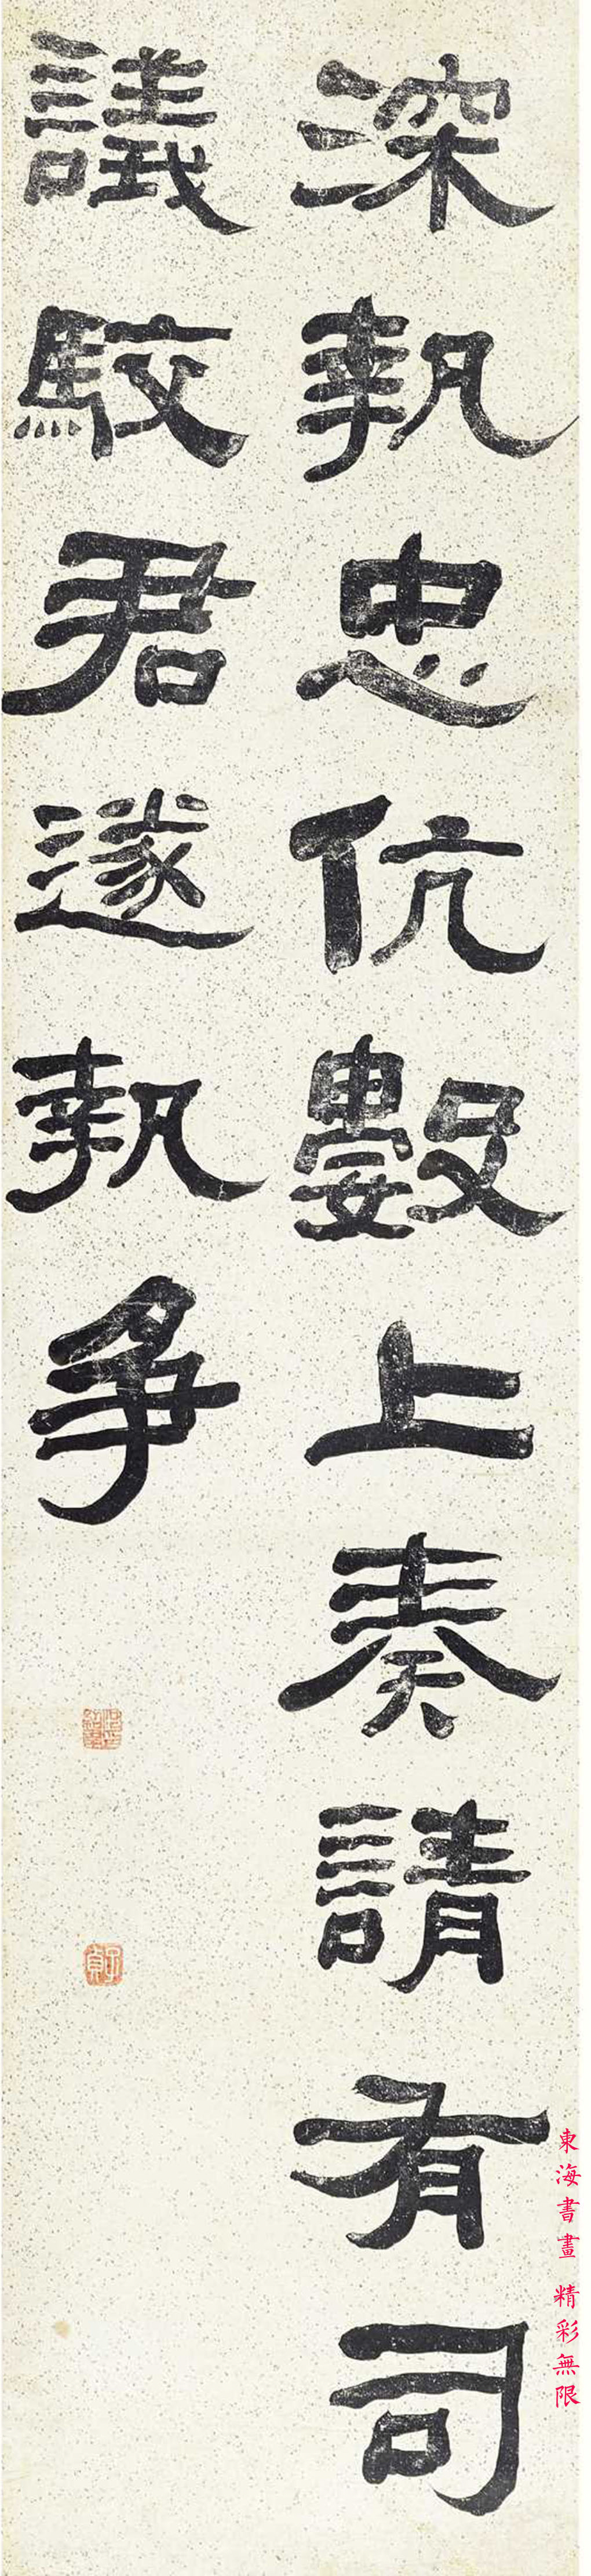 深執忠伉數上奏請有司
議駮君遂執爭
東海書畫 精彩無限